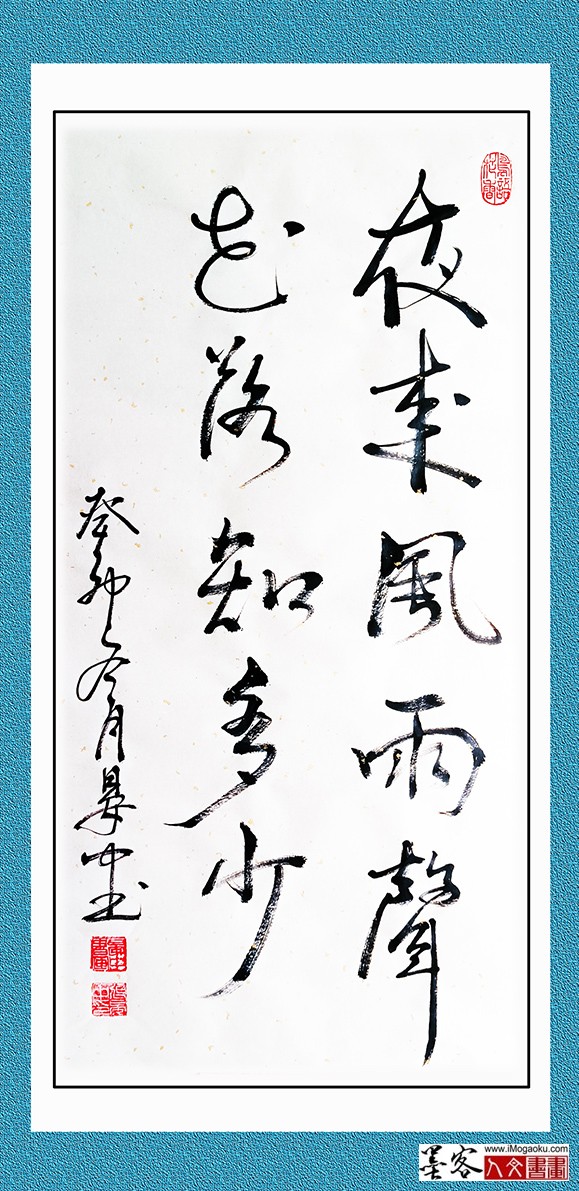 夜来風雨聲
花落知多少
癸卯冬月晏中书
墨客
www.iMogaoku.com
人文書畫